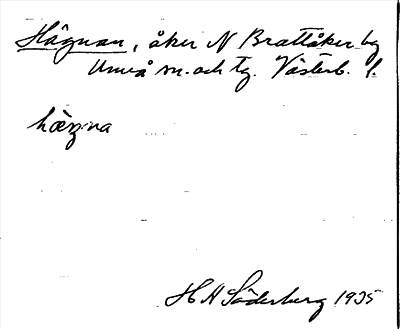 Hägnan, åker N Brattåker by
Umeå sn. och tg. Västerb. l.
hägna
H A Söderberg 1935